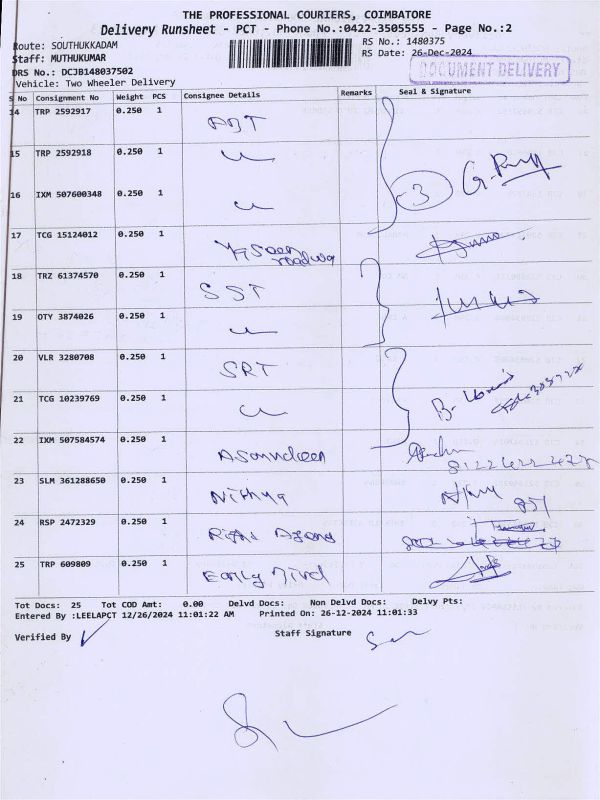 THE PROFESSIONAL COURIERS, COIMBATORE
Delivery Runsheet - PCT - Phone No.:0422-3505555 - Page No.:2
Route: SOUTHUKKADAM
RS No.: 1480375
Staff: MUTHUKUMAR
RS Date: 26-Dec-2024
DRS No.: DCJB148037502
DOCUMENT DELIVERY
Vehicle: Two Wheeler Delivery
S No Consignment No Weight PCS Consignee Details Remarks Seal & Signature
14 TRP 2592917 0.250 1
15 TRP 2592918 0.250 1
16 IXM 507600348 0.250 1
3
17 TCG 15124012 0.250 1
18 TRZ 61374570 0.250 1 SST
19 OTY 3874026 0.250 1
20 VLR 3280708 0.250 1 SRT
21 TCG 10239769 0.250 1
22 IXM 507584574 0.250 1
23 SLM 361288650 0.250 1 Nithya
24 RSP 2472329 0.250 1
25 TRP 609809 0.250 1 Early
Tot Docs: 25 Tot COD Amt: 0.00 Delvd Docs: Non Delvd Docs: Delvy Pts:
Entered By :LEELAPCT 12/26/2024 11:01:22 AM Printed On: 26-12-2024 11:01:33
Verified By Staff Signature